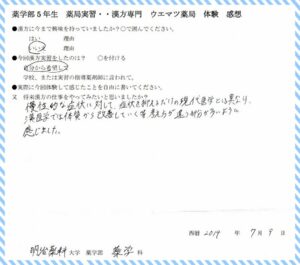 薬学部5年生 薬局実習・・漢方専門 ウエマツ薬局 体験 感想
●漢方に今まで興味を持っていましたか?○で囲んでください。
はい 理由
いいえ 理由
●今回漢方実習をしたのは? ○を付ける
自分から希望して
学校、または実習の指導薬剤師に言われて。
●実際に今回体験して感じたことを自由に書いてください。
又 将来漢方の仕事をやってみたいと思いましたか?
慢性的な症状に対して、症状を抑えるだけの現代医学とは異なり、
漢医学では体質から改善していく等考え方が違う部分が多いように
感じました。
西暦 2019 年 7月 9日
明治薬科大学 薬学部 薬学科